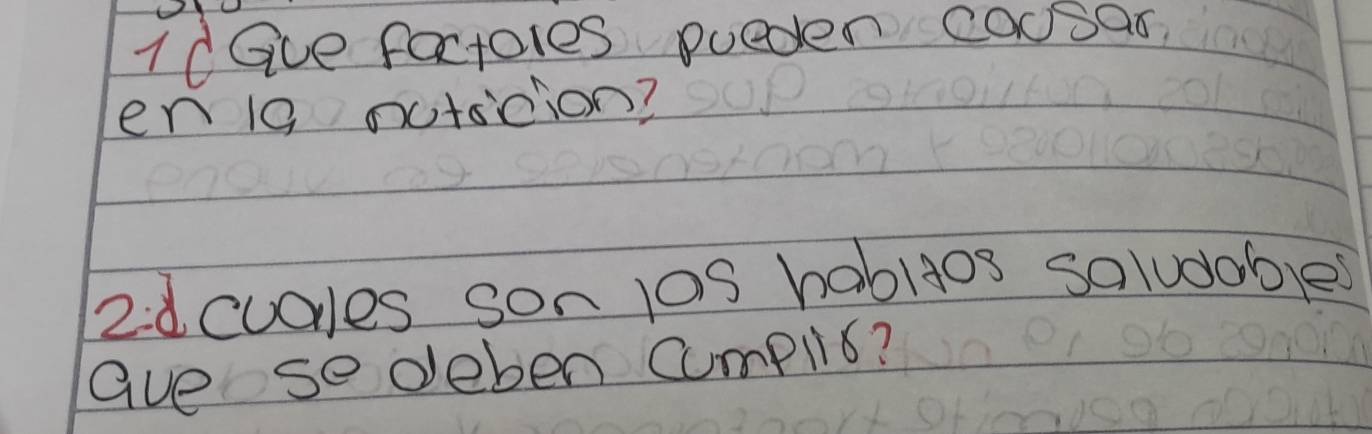 1 ¿Que factores pueden causar
en la nutricion?
2. ¿cuales son los habitos saludables
que se deben cumplir?